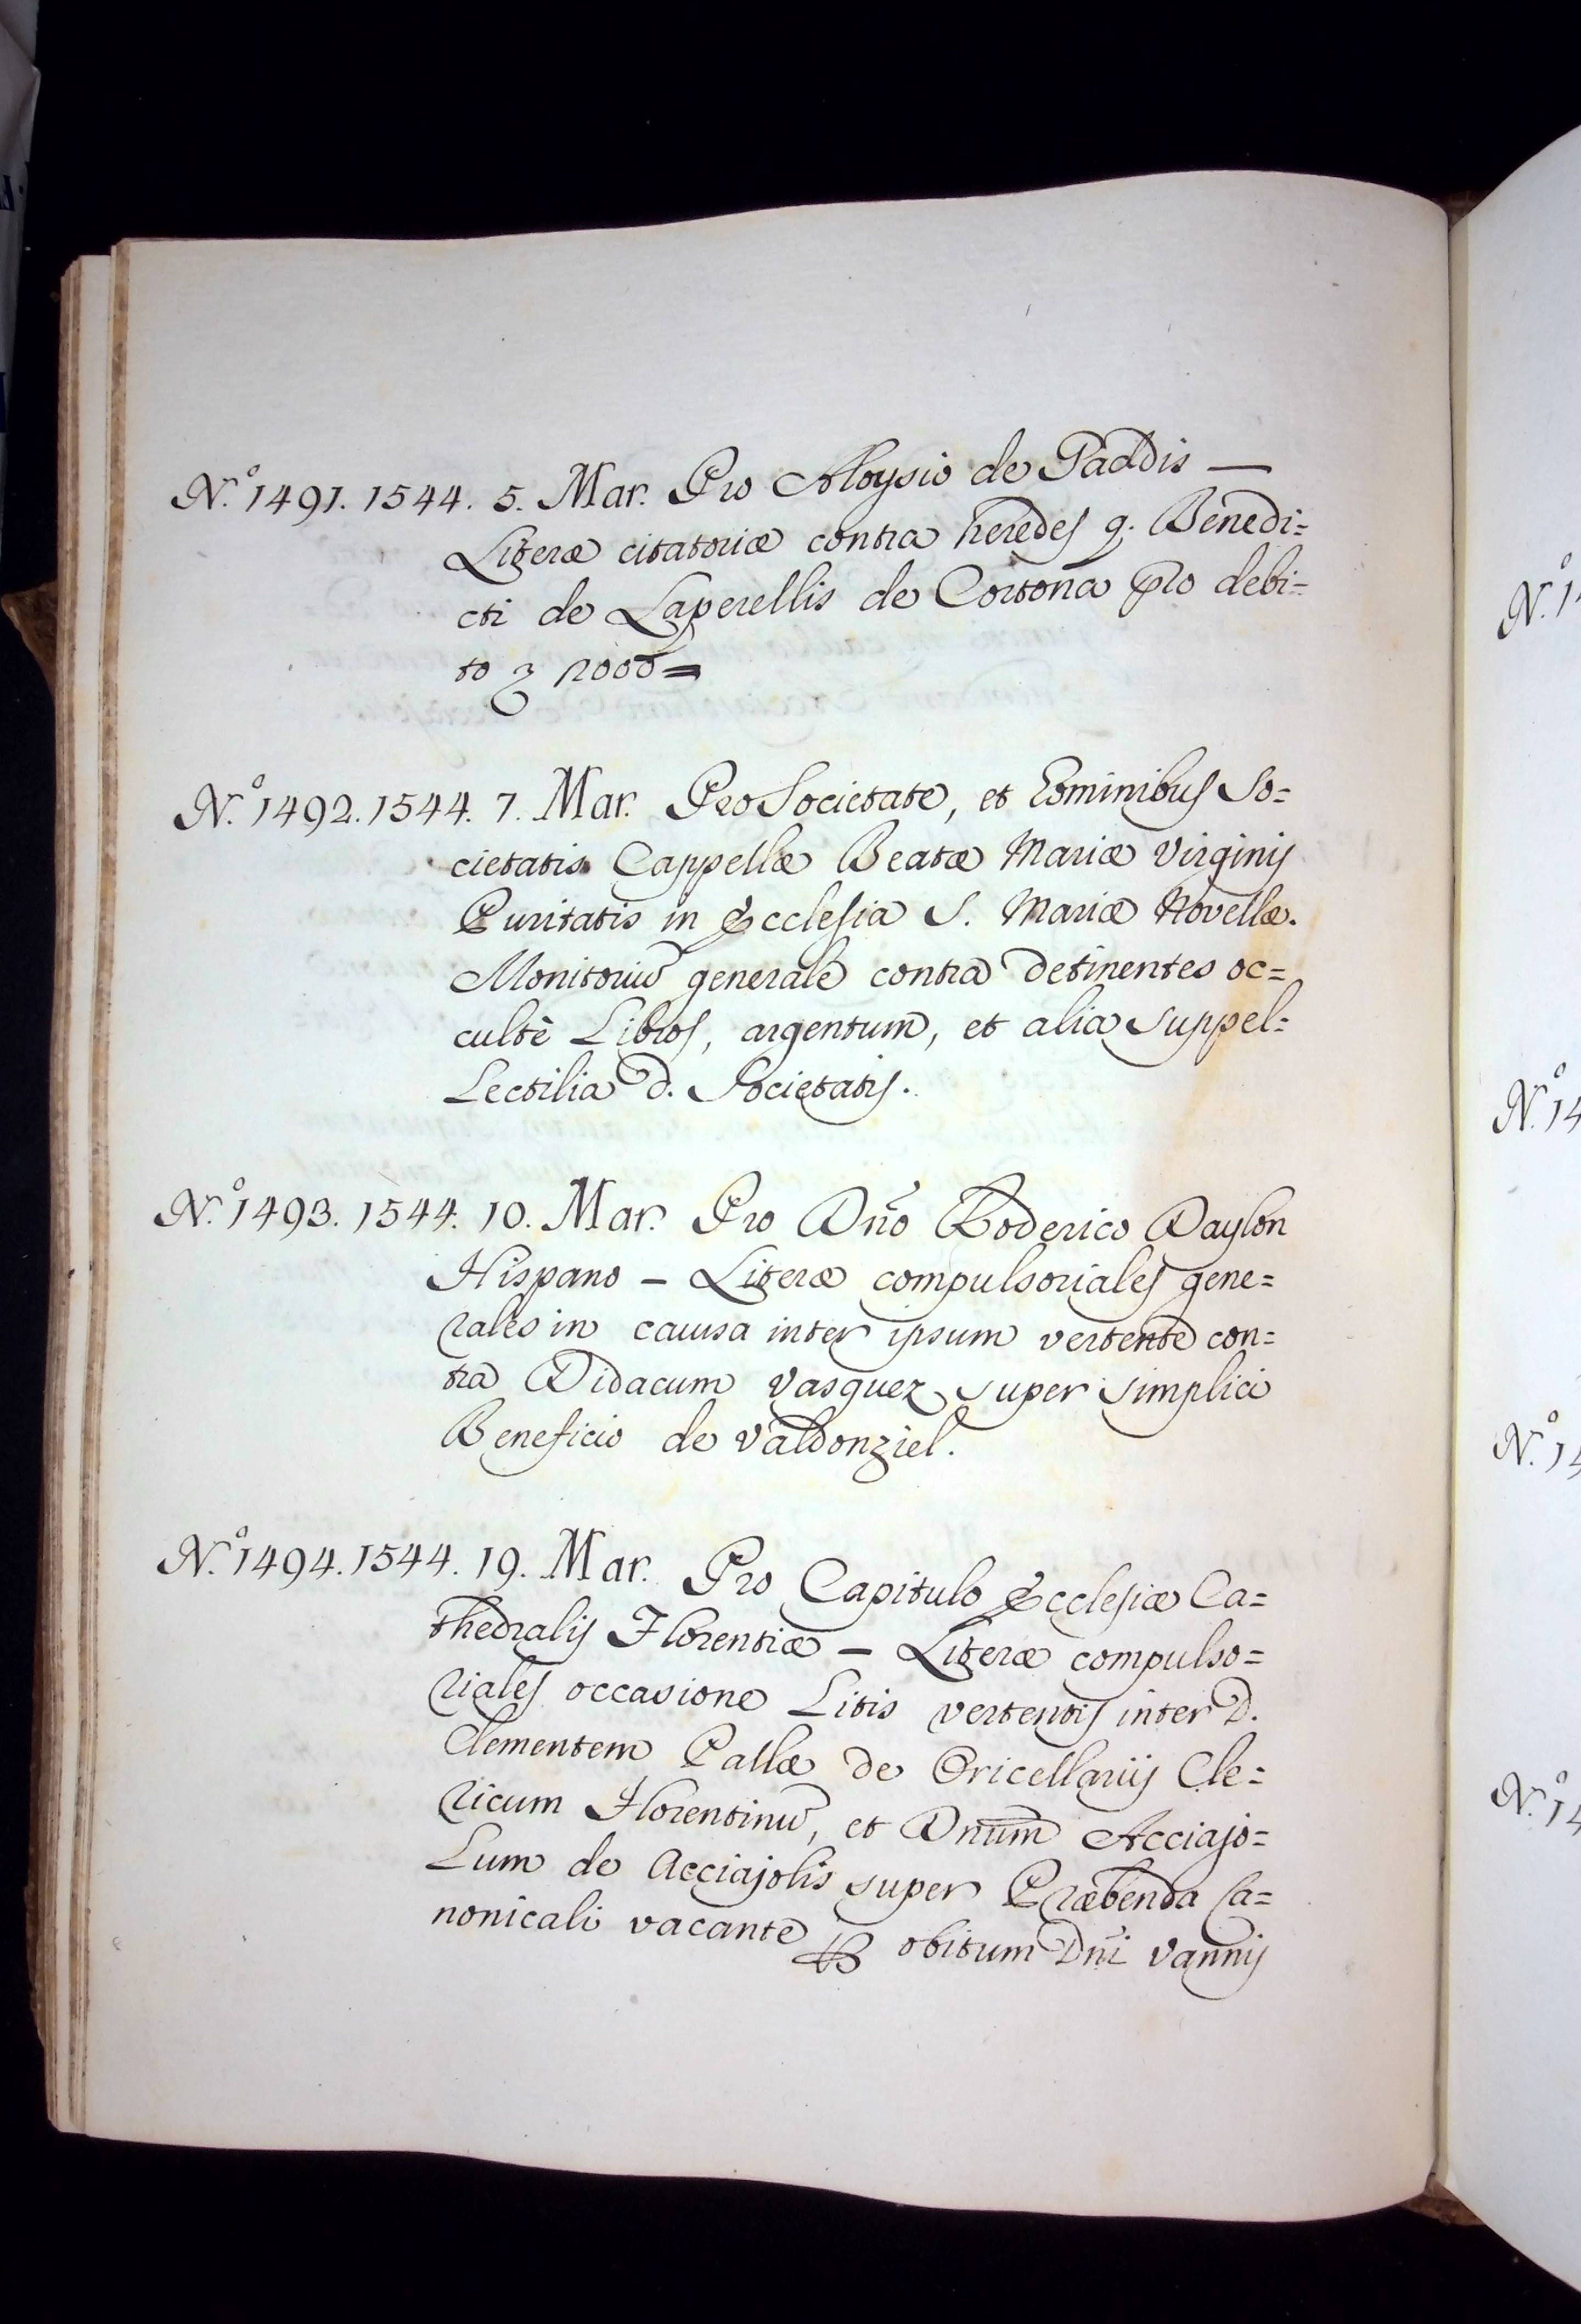 N.º 1491. 1544. 5. Mar. Pro Aloysio de Paddis —
Literæ citatoriæ contra heredes q. Benedi=
cti de Laperellis de Cortona pro debi=
to
N.º 1492. 1544. 7. Mar. Pro Societate, et Hominibus So=
cietatis Cappellæ Beatæ Mariæ Virginis
Puritatis in Ecclesia S. Mariæ Novellæ.
Monitoriũ generale contra detinentes oc=
cultè Libros, argentum, et alia suppel=
lectilia d. Societatis.
N.º 1493. 1544. 10. Mar. Pro Dño Roderico Daylon
Hispano — Literæ compulsoriales gene=
rales in causa inter ipsum vertente con=
tra Didacum Vasquez super simplici
Beneficio de Valdonziel.
N.º 1494. 1544. 19. Mar. Pro Capitulo Ecclesiæ Ca=
thedralis Florentiæ — Literæ compulso=
riales occasione Litis vertentis inter D.
Clementem Pallæ de Oricellariis Cle=
ricum Florentinũ, et Dnum Acciajo=
lum de Acciajolis super Præbenda Ca=
nonicali vacante obitum Dñi Vannis
N.º 1
N.º 14
N.º 14
N.º 14